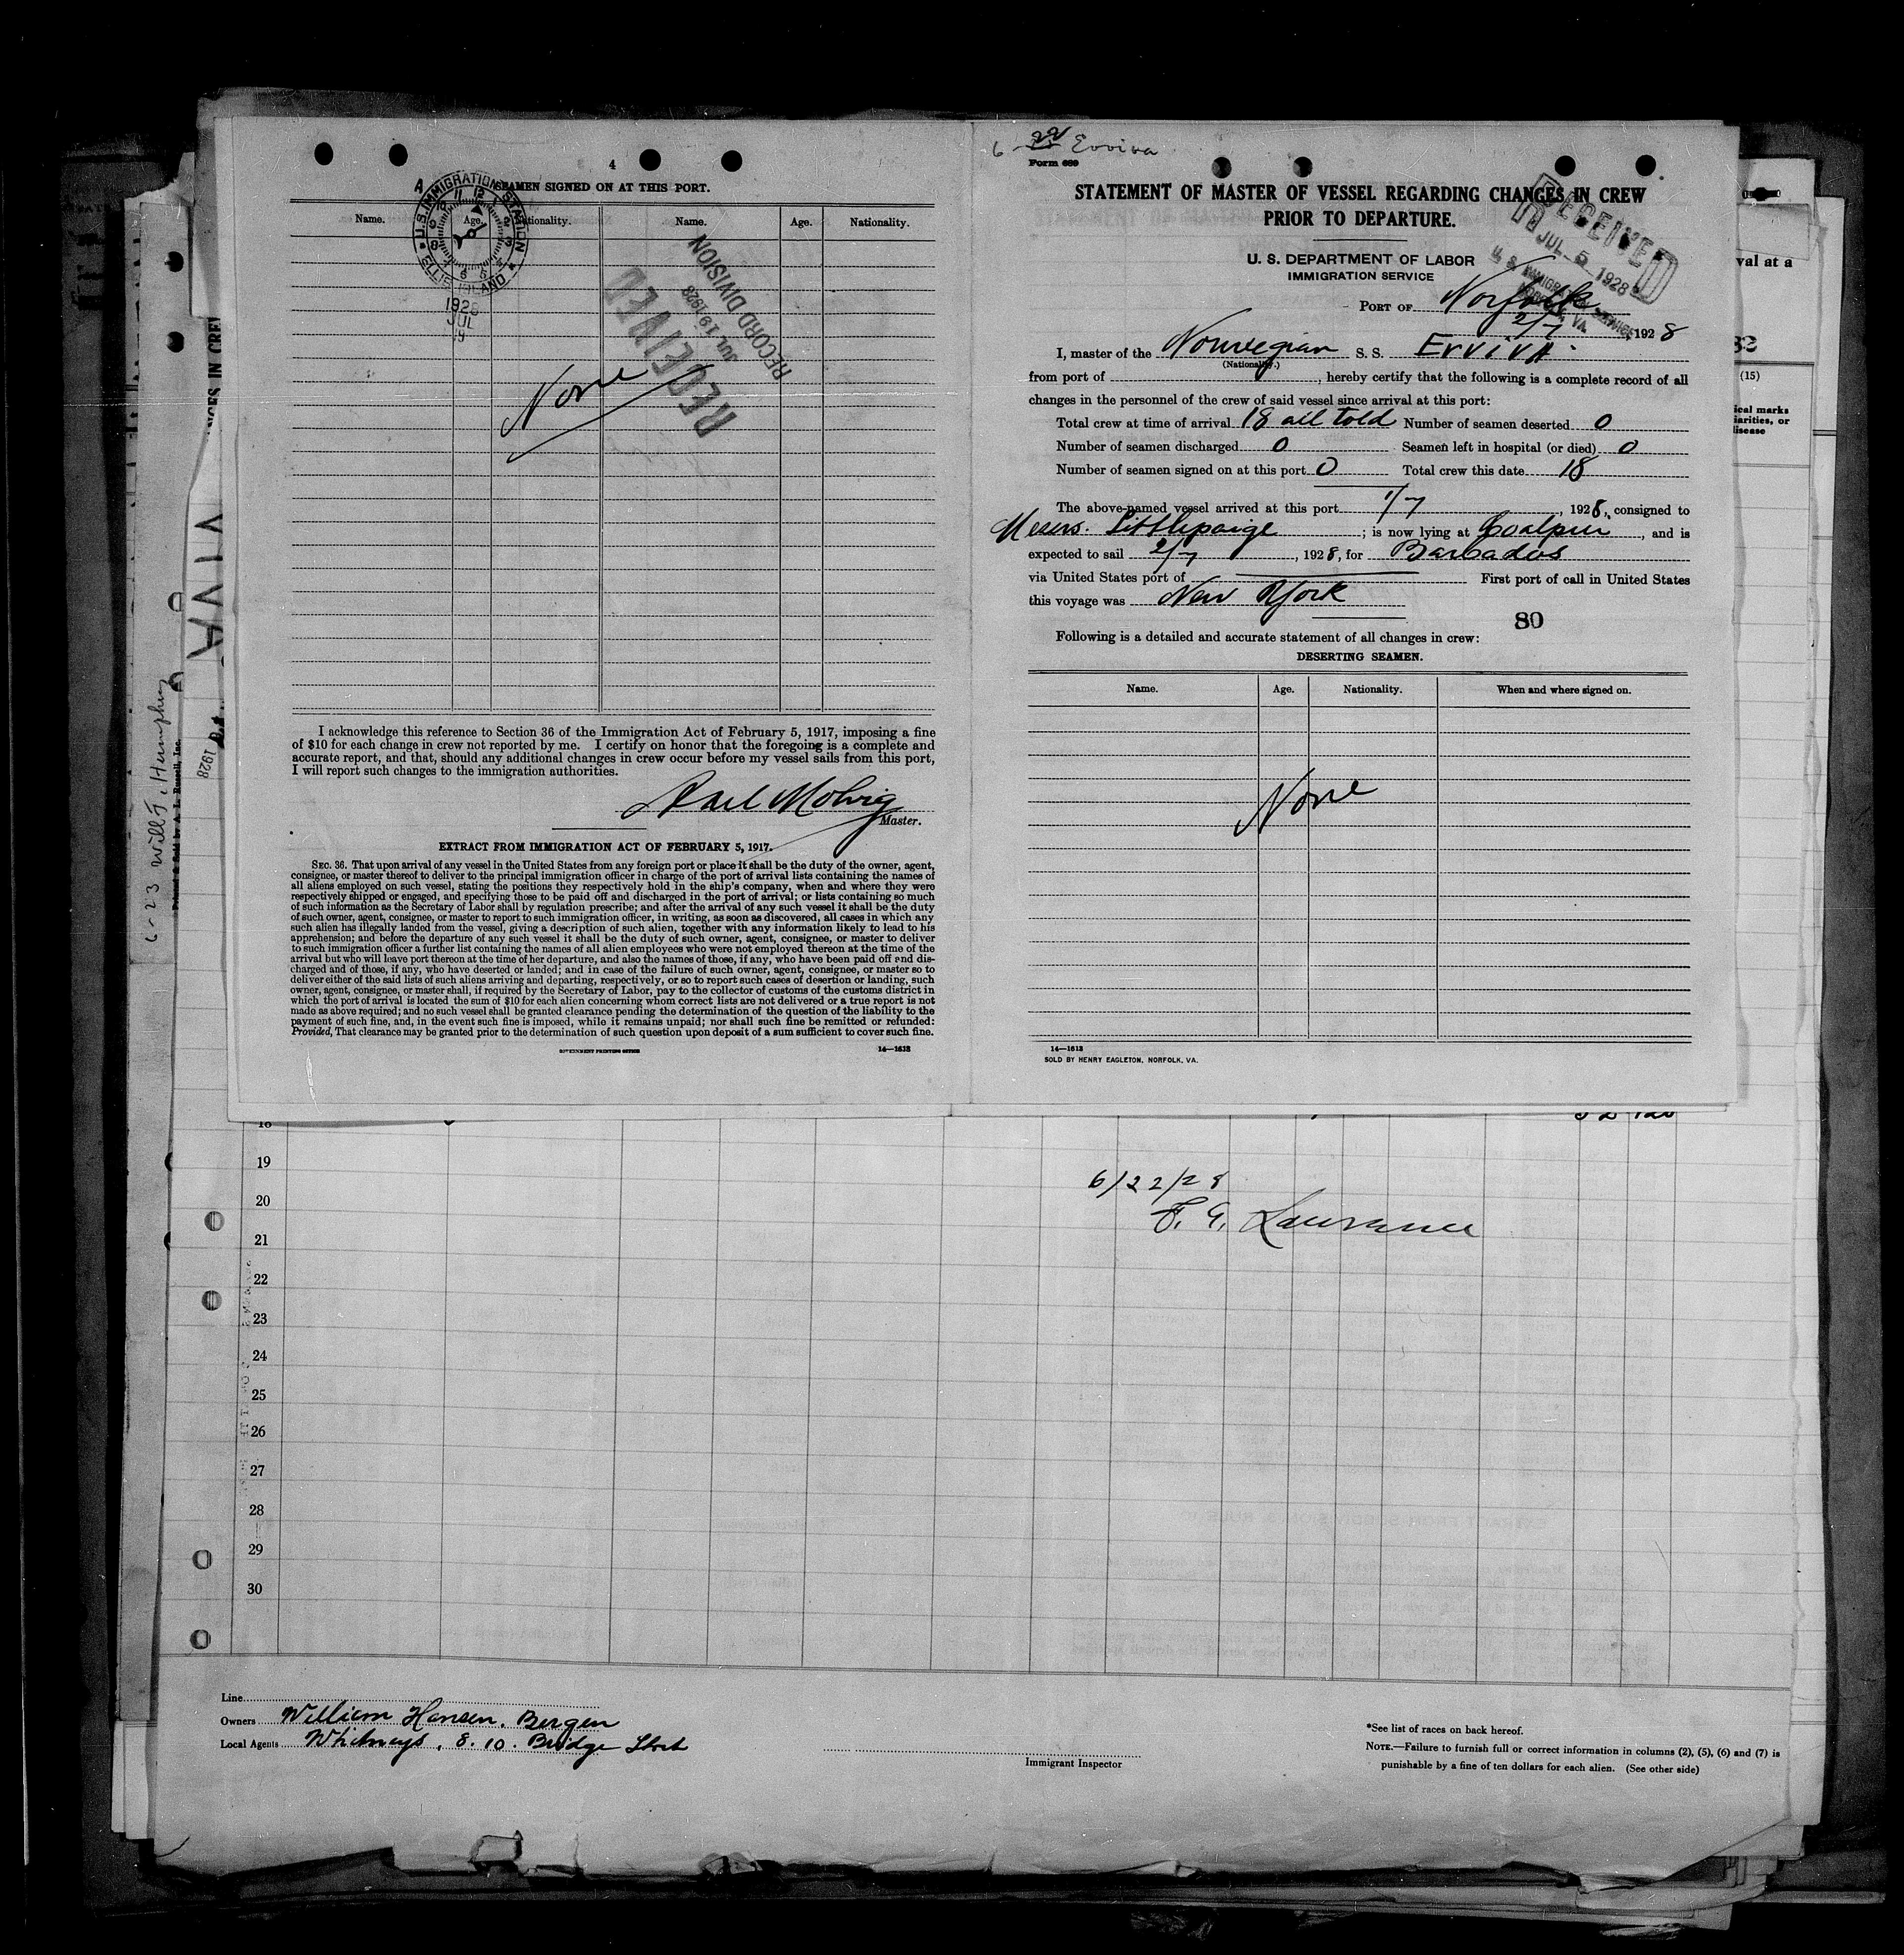 4
SEAMEN SIGNED ON AT THIS PORT.
Name. Age. Nationality. Name. Age. Nationality.
U.S. IMMIGRATION STATION
ELLIS ISLAND
1928
JUL
19
RECEIVED
JUL 19 1928
RECORD DIVISION
None
I acknowledge this reference to Section 36 of the Immigration Act of February 5, 1917, imposing a fine
of $10 for each change in crew not reported by me. I certify on honor that the foregoing is a complete and
accurate report, and that, should any additional changes in crew occur before my vessel sails from this port,
I will report such changes to the immigration authorities.
Master.
EXTRACT FROM IMMIGRATION ACT OF FEBRUARY 5, 1917.
SEC. 36. That upon arrival of any vessel in the United States from any foreign port or place it shall be the duty of the owner, agent,
consignee, or master thereof to deliver to the principal immigration officer in charge of the port of arrival lists containing the names of
all aliens employed on such vessel, stating the positions they respectively hold in the ship's company, when and where they were
respectively shipped or engaged, and specifying those to be paid off and discharged in the port of arrival; or lists containing so much
of such information as the Secretary of Labor shall by regulation prescribe; and after the arrival of any such vessel it shall be the duty
of such owner, agent, consignee, or master to report to such immigration officer, in writing, as soon as discovered, all cases in which any
such alien has illegally landed from the vessel, giving a description of such alien, together with any information likely to lead to his
apprehension; and before the departure of any such vessel it shall be the duty of such owner, agent, consignee, or master to deliver
to such immigration officer a further list containing the names of all alien employees who were not employed thereon at the time of the
arrival but who will leave port thereon at the time of her departure, and also the names of those, if any, who have been paid off and dis-
charged and of those, if any, who have deserted or landed; and in case of the failure of such owner, agent, consignee, or master so to
deliver either of the said lists of such aliens arriving and departing, respectively, or so to report such cases of desertion or landing, such
owner, agent, consignee, or master shall, if required by the Secretary of Labor, pay to the collector of customs of the customs district in
which the port of arrival is located the sum of $10 for each alien concerning whom correct lists are not delivered or a true report is not
made as above required; and no such vessel shall be granted clearance pending the determination of the question of the liability to the
payment of such fine, and, in the event such fine is imposed, while it remains unpaid; nor shall such fine be remitted or refunded:
Provided, That clearance may be granted prior to the determination of such question upon deposit of a sum sufficient to cover such fine.
GOVERNMENT PRINTING OFFICE 14—1613
6-22 Evviva
Form 689
STATEMENT OF MASTER OF VESSEL REGARDING CHANGES IN CREW
PRIOR TO DEPARTURE.
U. S. DEPARTMENT OF LABOR
IMMIGRATION SERVICE
RECEIVED
JUL 5 1928
U. S. IMMIGRATION SERVICE
NORFOLK, VA.
PORT OF Norfolk
2/7, 1928
I, master of the Norwegian S. S. EvvivA
(Nationality.)
from port of , hereby certify that the following is a complete record of all
changes in the personnel of the crew of said vessel since arrival at this port:
Total crew at time of arrival 18 all told Number of seamen deserted 0
Number of seamen discharged 0 Seamen left in hospital (or died) 0
Number of seamen signed on at this port 0 Total crew this date 18
The above-named vessel arrived at this port 1/7, 1928, consigned to
Messrs. Littlepaige; is now lying at Coalpier, and is
expected to sail 2/7, 1928, for Barbados
via United States port of First port of call in United States
this voyage was New York
80
Following is a detailed and accurate statement of all changes in crew:
DESERTING SEAMEN.
Name. Age. Nationality. When and where signed on.
None
14—1613
SOLD BY HENRY EAGLETON, NORFOLK, VA.
val at a
82
(15)
ical marks
iarities, or
disease
NGES IN CREW
VIVA
1928
6-23 Will T. Humphrey
Printed & Sold by A. L. Russell, Inc.
18
19
20
21
22
23
24
25
26
27
28
29
30
6/22/28
F. G. Lawrence
Line
Owners William Hansen. Bergen
Local Agents Whitneys, 8. 10. Bridge Street
Immigrant Inspector
*See list of races on back hereof.
NOTE.—Failure to furnish full or correct information in columns (2), (5), (6) and (7) is
punishable by a fine of ten dollars for each alien. (See other side)